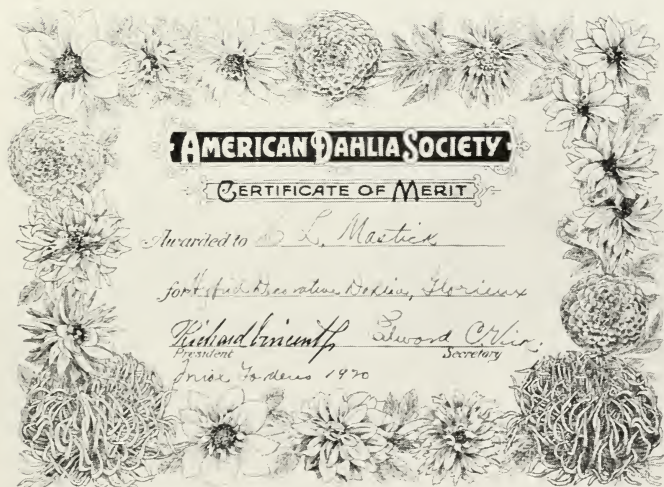 AMERICAN DAHLIA SOCIETY
CERTIFICATE OF MERIT
Awarded to L. Mastick
for Hybrid Decorative Dahlia, Glorieux
Richard Vincent Jr Edward C. Vick.
President Secretary
1920